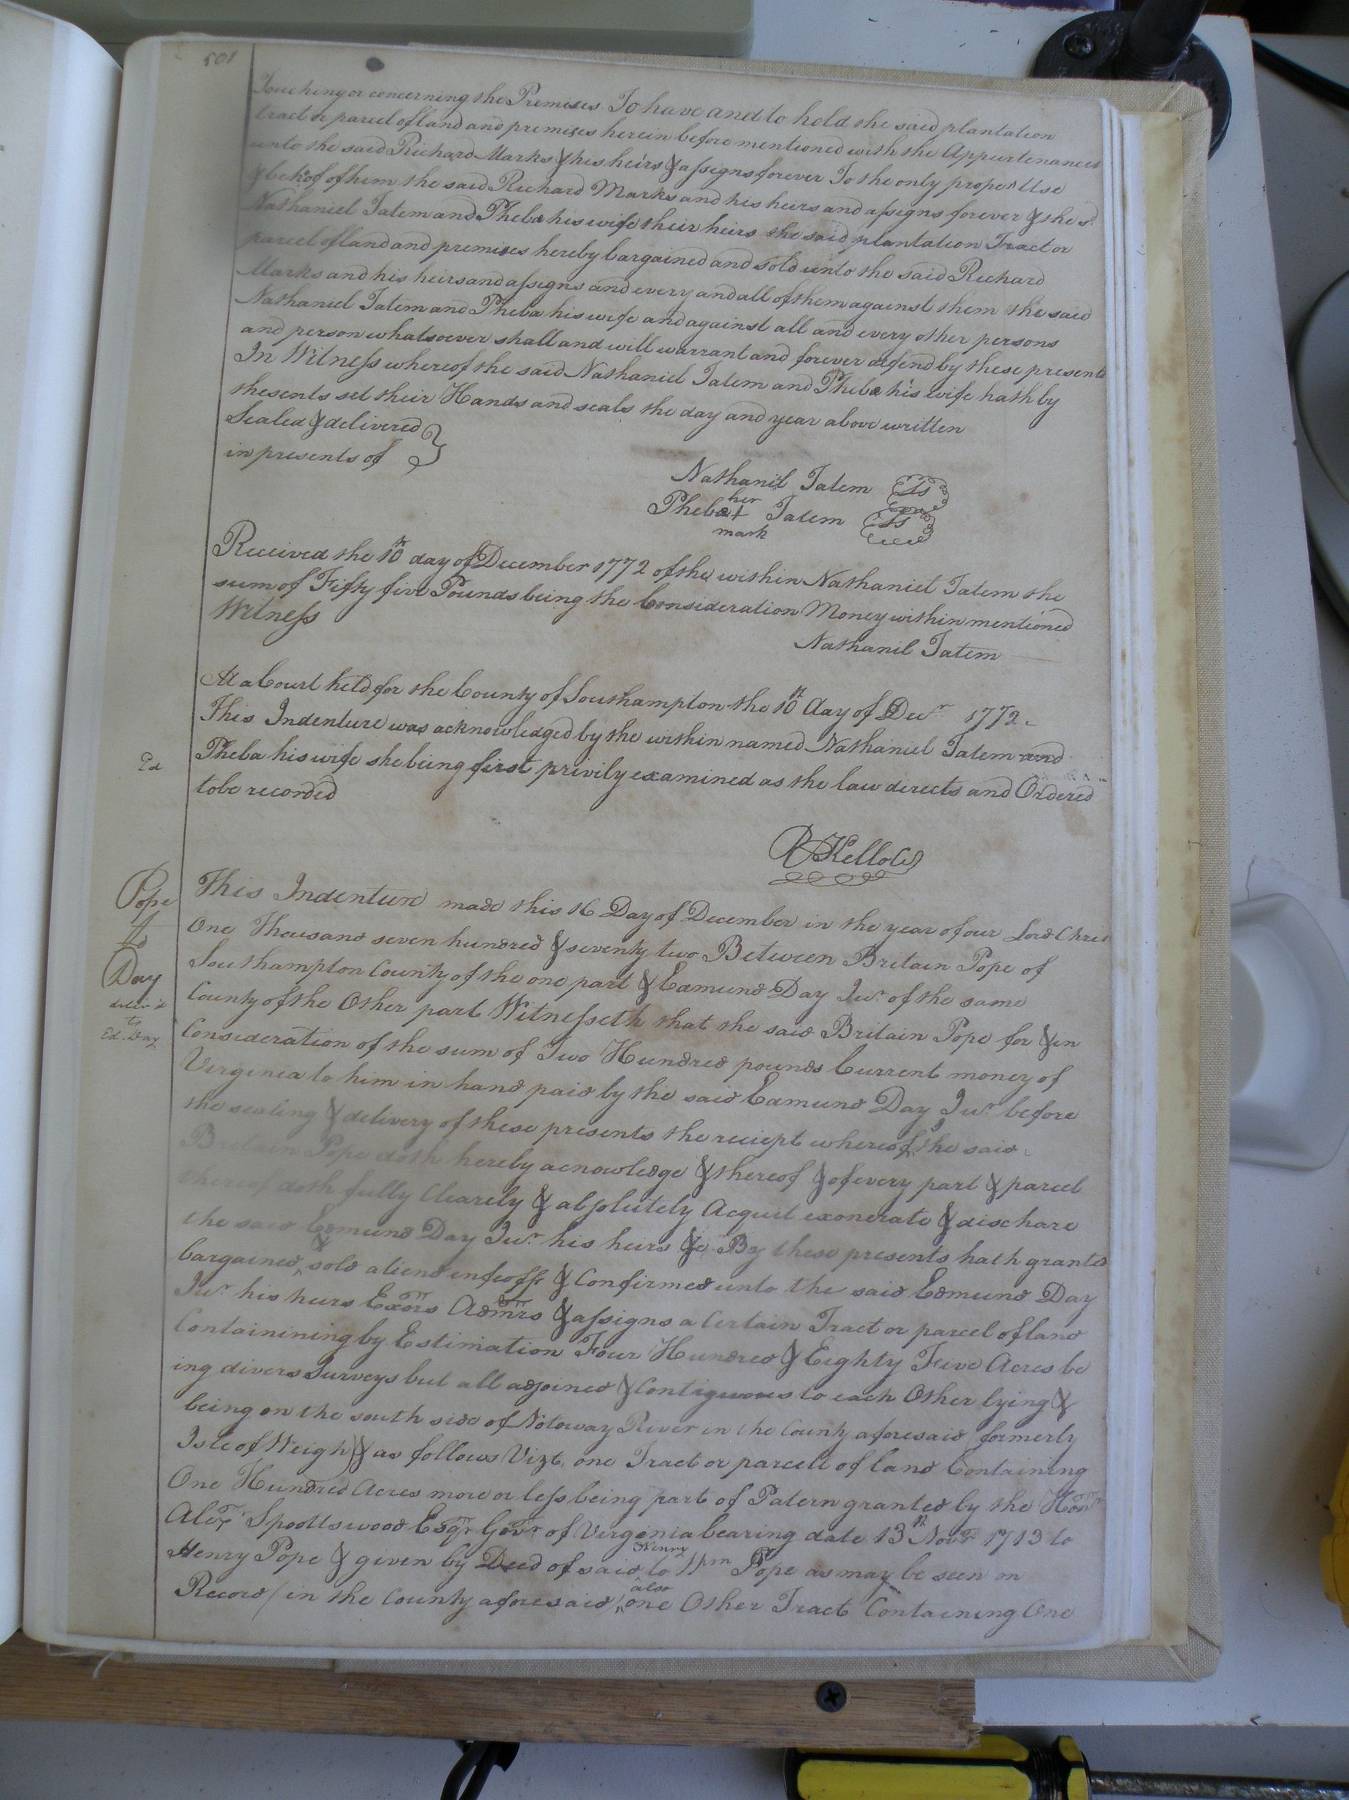 501
Touching or concerning the Premises To have and to hold the said plantation
tract or parcel of land and premises herein before mentioned with the Appurtenances
unto the said Richard Marks & his heirs & assigns forever To the only proper Use
& behoof of him the said Richard Marks and his heirs and assigns forever & the sd
Nathaniel Tatem and Pheba his wife their heirs the said plantation Tract or
parcel of land and premises hereby bargained and sold unto the said Richard
Marks and his heirs and assigns and every and all of them against them the said
Nathaniel Tatem and Pheba his wife and against all and every other persons
and person whatsoever shall and will warrant and forever defend by these presents
In Witness whereof the said Nathaniel Tatem and Pheba his wife hath by
thesents set their Hands and seals the day and year above written
Sealed & delivered }
in presents of
Nathanil Tatem Ls
her
Pheba + Tatem Ls
mark
Received the 10th day of December 1772 of the within Nathaniel Tatem the
sum of Fifty five Pounds being the Consideration Money within mentioned
Witness
Nathanil Tatem
At a Court held for the County of Southampton the 10th day of Decr 1772
This Indenture was acknowledged by the within named Nathaniel Tatem and
Ed
Pheba his wife she being first privily examined as the law directs and Ordered
to be recorded
R Kello Cl
Pope
To
Day
deliv'd
to
Ed. Day
This Indenture made this 16 Day of December in the year of our Lord Christ
One Thousand seven hundred & seventy two Between Britain Pope of
Southampton County of the one part & Edmund Day Junr of the same
County of the Other part Witnesseth that the said Britain Pope for & in
Consideration of the sum of Two Hundred pounds Current money of
Virginia to him in hand paid by the said Edmund Day Junr before
the sealing & delivery of these presents the reciept whereof he the said
Britain Pope doth hereby acnowledge & thereof & of every part & parcel
thereof doth fully Clearely & absolutely Acquit exonerate & dischare
the said Edmund Day Junr his heirs &c By these presents hath granted
bargained & sold aliend infeoff & Confirmed unto the said Edmund Day
Junr his heirs Exors Admrs & assigns a Certain Tract or parcel of land
Containining by Estimation Four Hundred & Eighty Five Acres be
ing divers Surveys but all adjoined & Contiguous to each Other lying &
being on the south side of Notoway River in the County aforesaid formerly
Isle of Weight & as follows Vizt. one Tract or parcell of land Containing
One Hundred Acres more or less being part of Patern granted by the Honr
Alexr Spoottswood Esqr Govr of Virginia bearing date 13th Novr 1713 to
Henry Pope & given by Deed of said Henry to Wm Pope as may be seen on
Record / in the County aforesaid, also one Other Tract Containing One